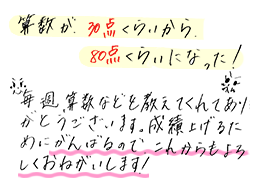 算数が、30点くらいから、
80点くらいになった!
毎週、算数などを教えてくれてあり
がとうございます。成績上げるた
めにがんばるので、これからもよろ
しくおねがいします!